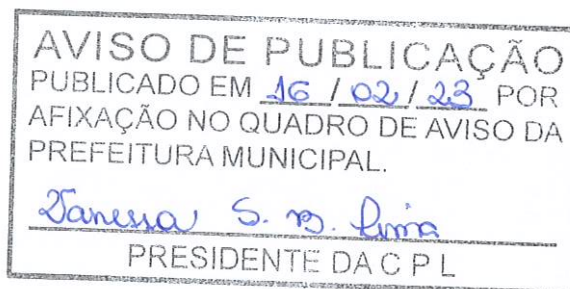 AVISO DE PUBLICAÇÃO
PUBLICADO EM 16 / 02 / 23 POR
AFIXAÇÃO NO QUADRO DE AVISO DA
PREFEITURA MUNICIPAL.
Vanessa S. B. Lima
PRESIDENTE DA C P L